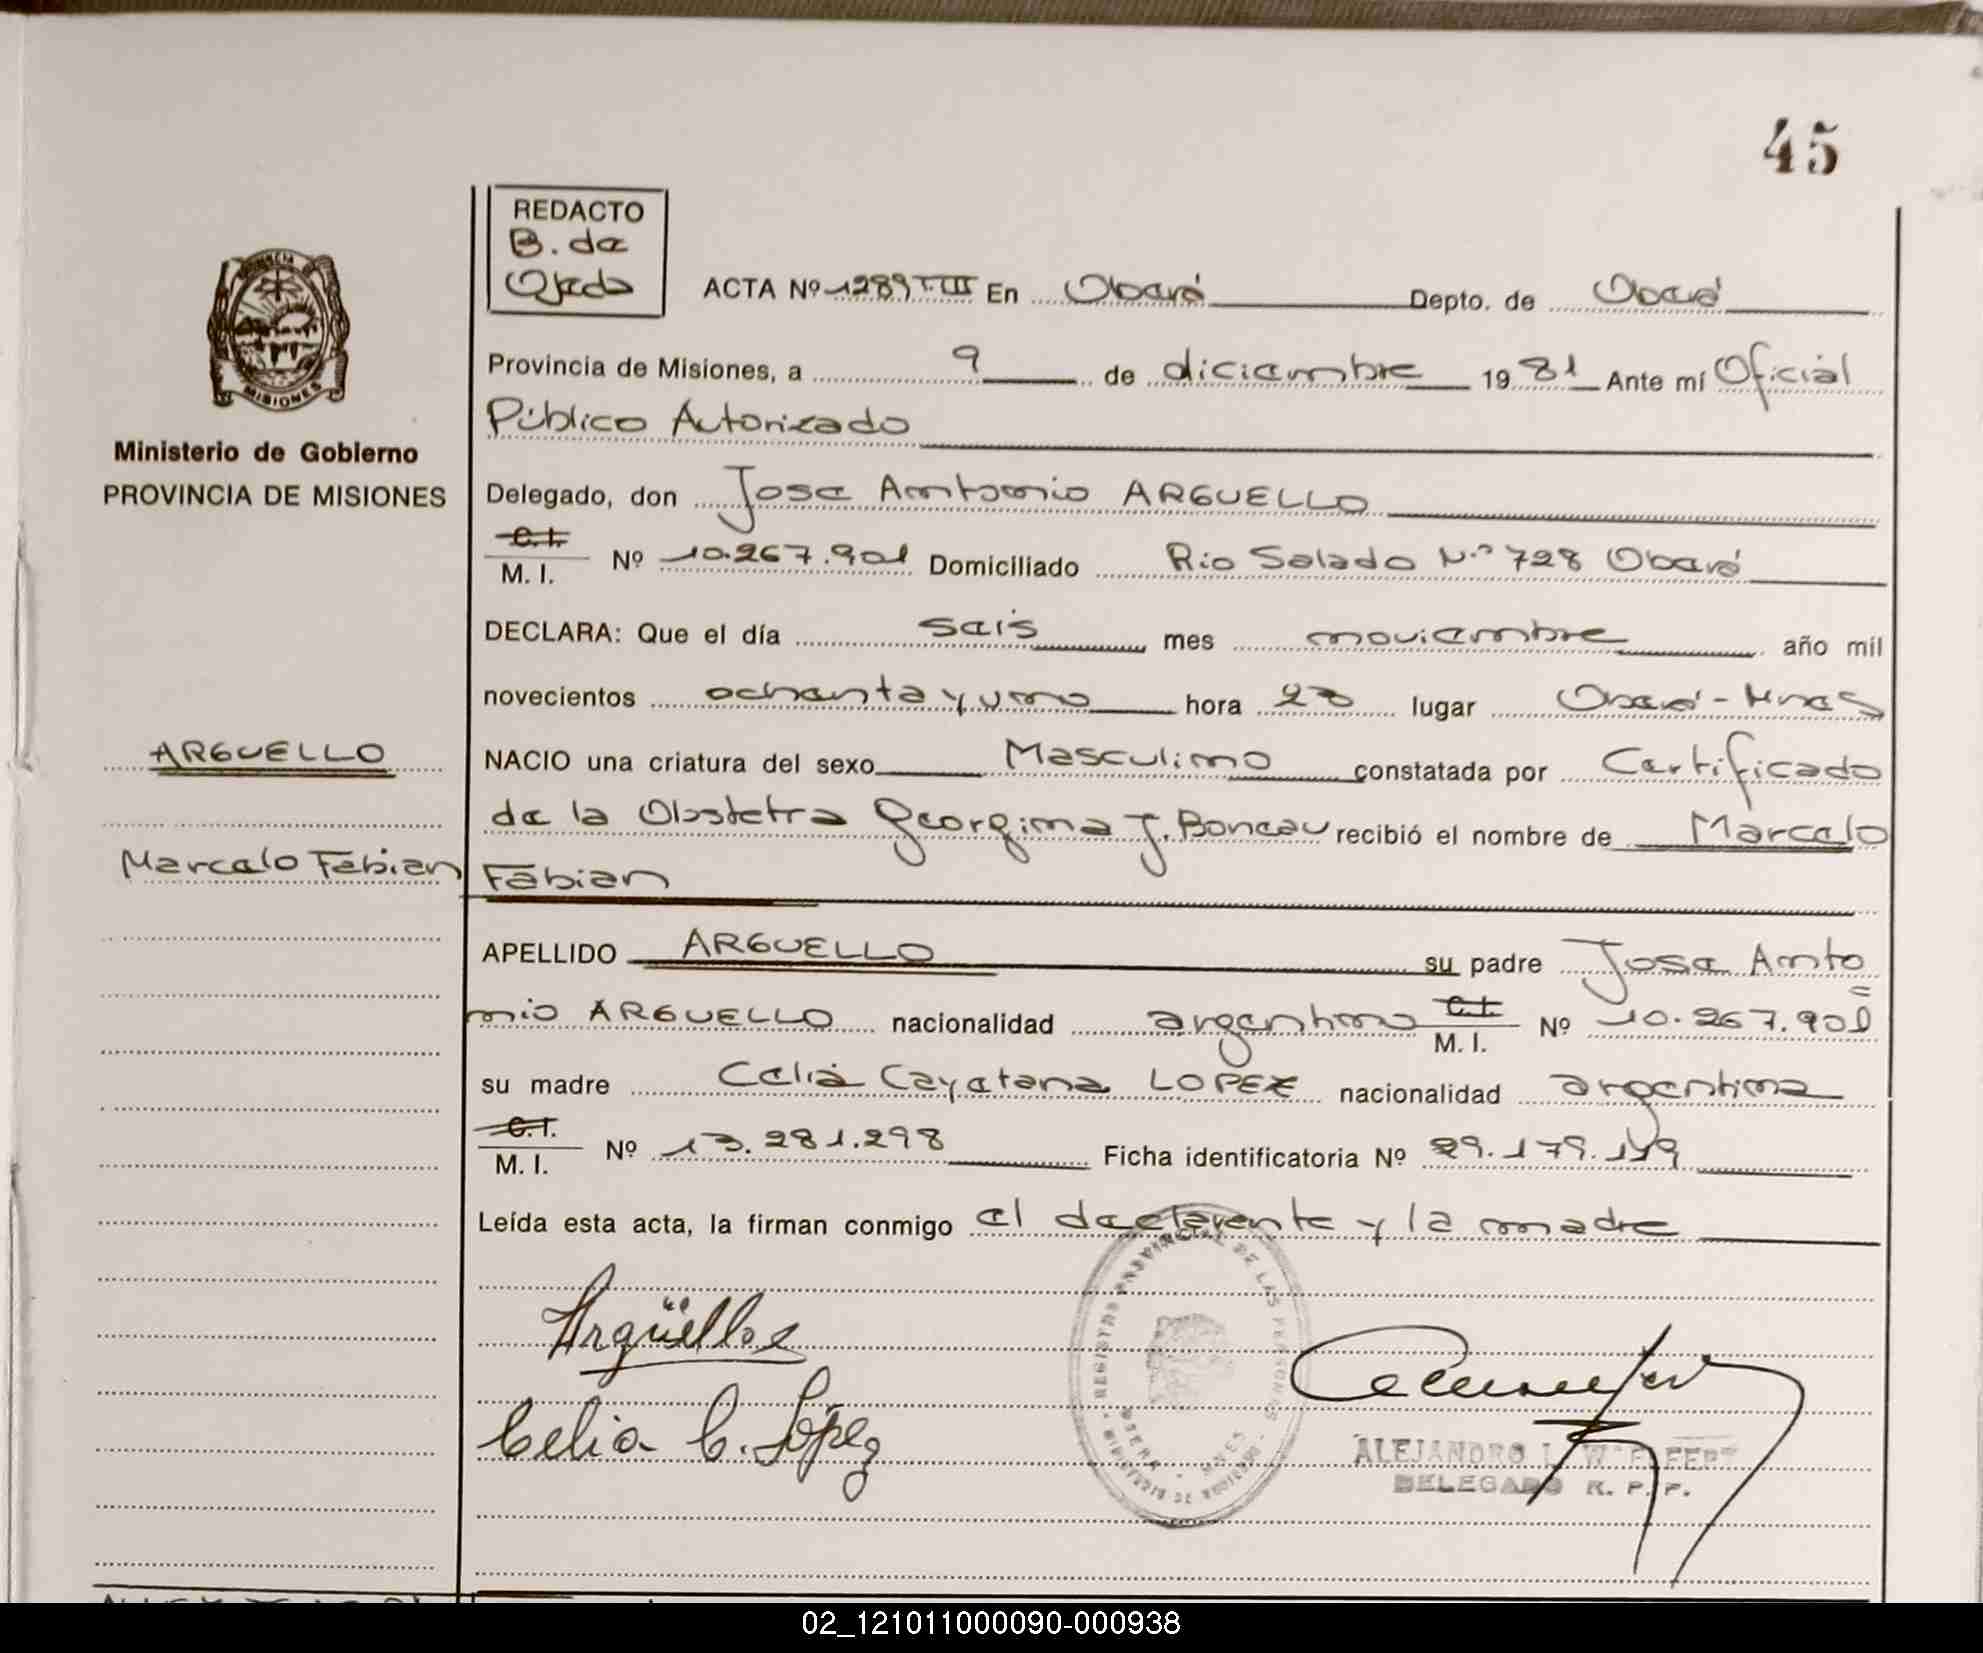 45
REDACTO
B. de
Ojeda
ACTA Nº 1289 T.III En Oberá Depto. de Oberá
Provincia de Misiones, a 9 de diciembre 1981 Ante mí Oficial
Público Autorizado
Ministerio de Gobierno
PROVINCIA DE MISIONES
Delegado, don Jose Antonio ARGUELLO
C.I.
M. I. Nº 10.267.901 Domiciliado Rio Salado N.º 728 Oberá
DECLARA: Que el día seis mes noviembre año mil
novecientos ochenta y uno hora 23 lugar Oberá-Mnes
ARGUELLO
NACIO una criatura del sexo Masculino constatada por Certificado
de la Obstetra Georgina J. recibió el nombre de Marcelo
Marcelo Fabian
Fabian
APELLIDO ARGUELLO su padre Jose Anto
nio ARGUELLO nacionalidad argentino C.I.
M. I. Nº 10.267.901
su madre Celia Cayetana LOPEZ nacionalidad argentina
C.I.
M. I. Nº 13.281.298 Ficha identificatoria Nº 29.179.149
Leída esta acta, la firman conmigo el declarente y la madre
Argüello
Celia C. López
REGISTRO PROVINCIAL DE LAS PERSONAS
MINISTERIO DE GOBIERNO
ALEJANDRO L. W. PFEFERT
DELEGADO R. P. P.
02_121011000090-000938